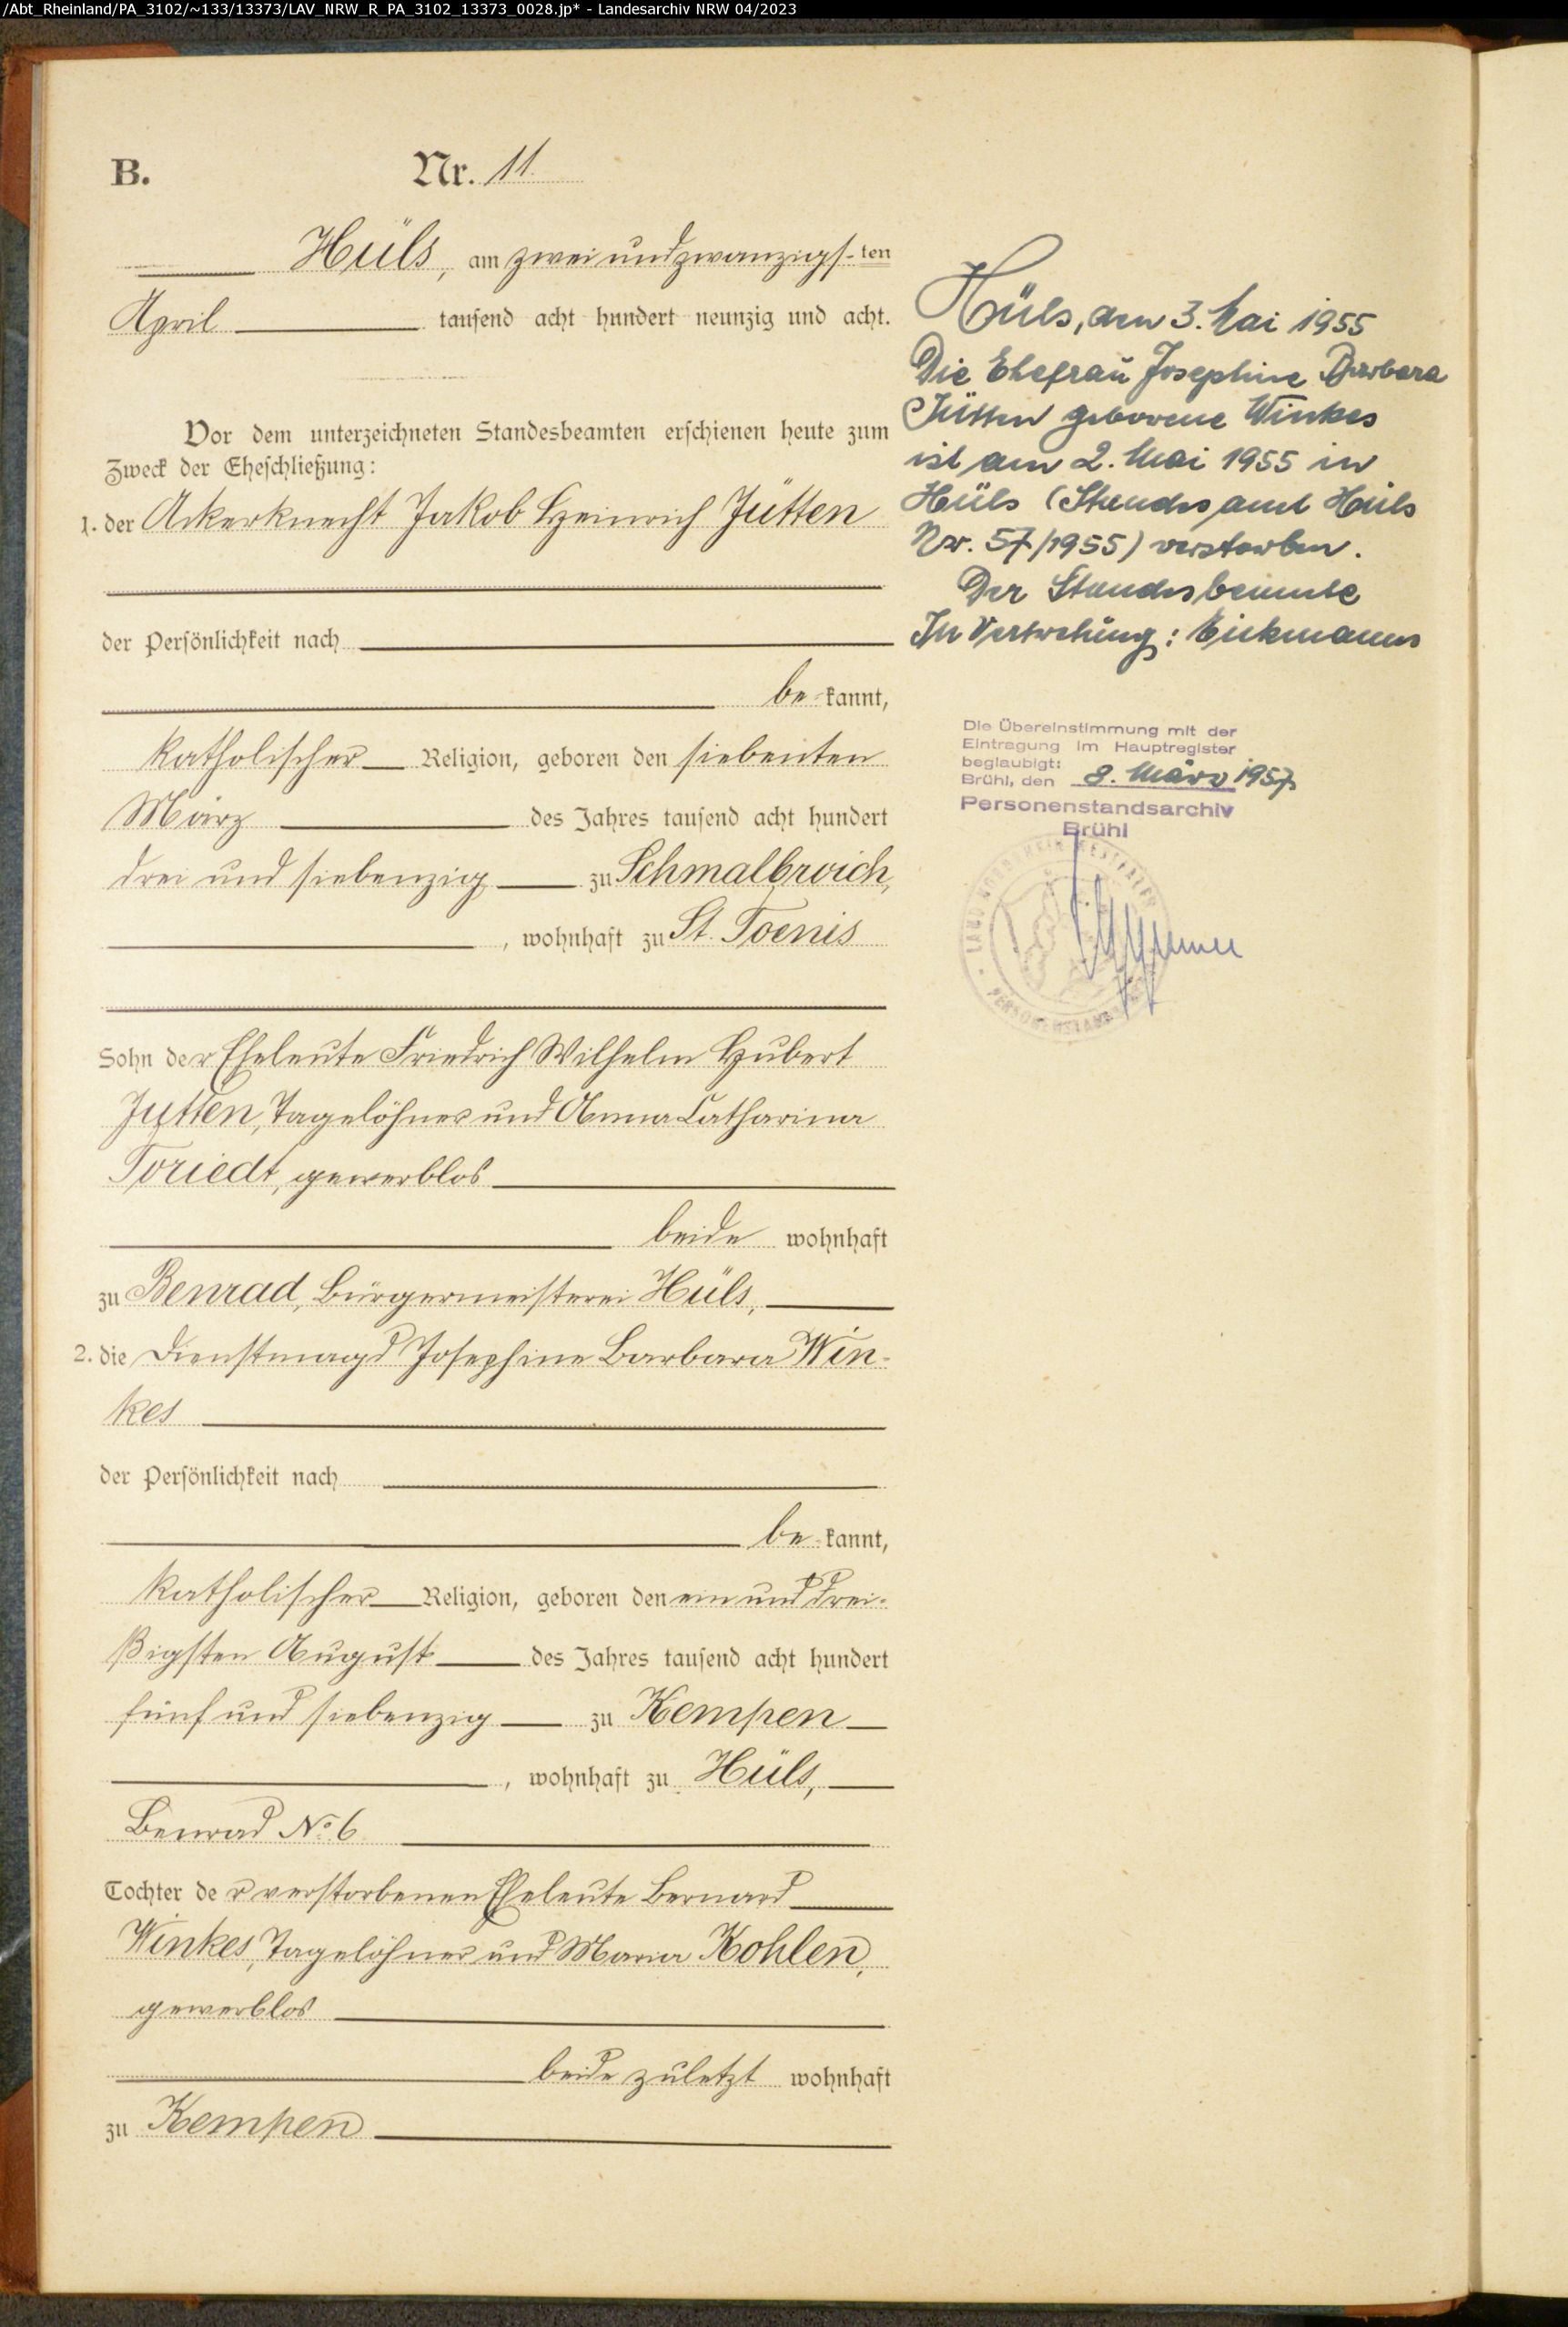 /Abt_Rheinland/PA_3102/~133/13373/LAV_NRW_R_PA_3102_13373_0028.jp* - Landesarchiv NRW 04/2023
B. Nr. 11
Hüls, am zweiundzwanzigs-ten
April tausend acht hundert neunzig und acht.
Vor dem unterzeichneten Standesbeamten erschienen heute zum
Zweck der Eheschließung:
1. der Ackerknecht Jakob Heinrich Jütten
der Persönlichkeit nach
be-kannt,
katholischer Religion, geboren den siebenten
März des Jahres tausend acht hundert
drei und siebenzig zu Schmalbroich,
, wohnhaft zu St. Toenis
Sohn der Eheleute Friedrich Wilhelm Hubert
Jütten, Tagelöhner und Anna Catharina
Toriedt, gewerblos
beide wohnhaft
zu Benrad, Bürgermeisterei Hüls,
2. die Dienstmagd Josephine Barbara Win-
kes
der Persönlichkeit nach
be-kannt,
katholischer Religion, geboren den ein und drei-
ßigsten August des Jahres tausend acht hundert
fünf und siebenzig zu Kempen
, wohnhaft zu Hüls,
Benrad No 6
Tochter der verstorbenen Eheleute Bernard
Winkes, Tagelöhner und Maria Kohlen,
gewerblos
beide zuletzt wohnhaft
zu Kempen
Hüls, den 3. Mai 1955
Die Ehefrau Josephine Barbara
Jütten geborene Winkes
ist am 2. Mai 1955 in
Hüls (Standesamt Hüls
Nr. 57/1955) verstorben.
Der Standesbeamte
In Vertretung: Eickmanns
Die Übereinstimmung mit der
Eintragung im Hauptregister
beglaubigt:
Brühl, den 8. März 1957
Personenstandsarchiv
Brühl
LAND NORDRHEIN WESTFALEN